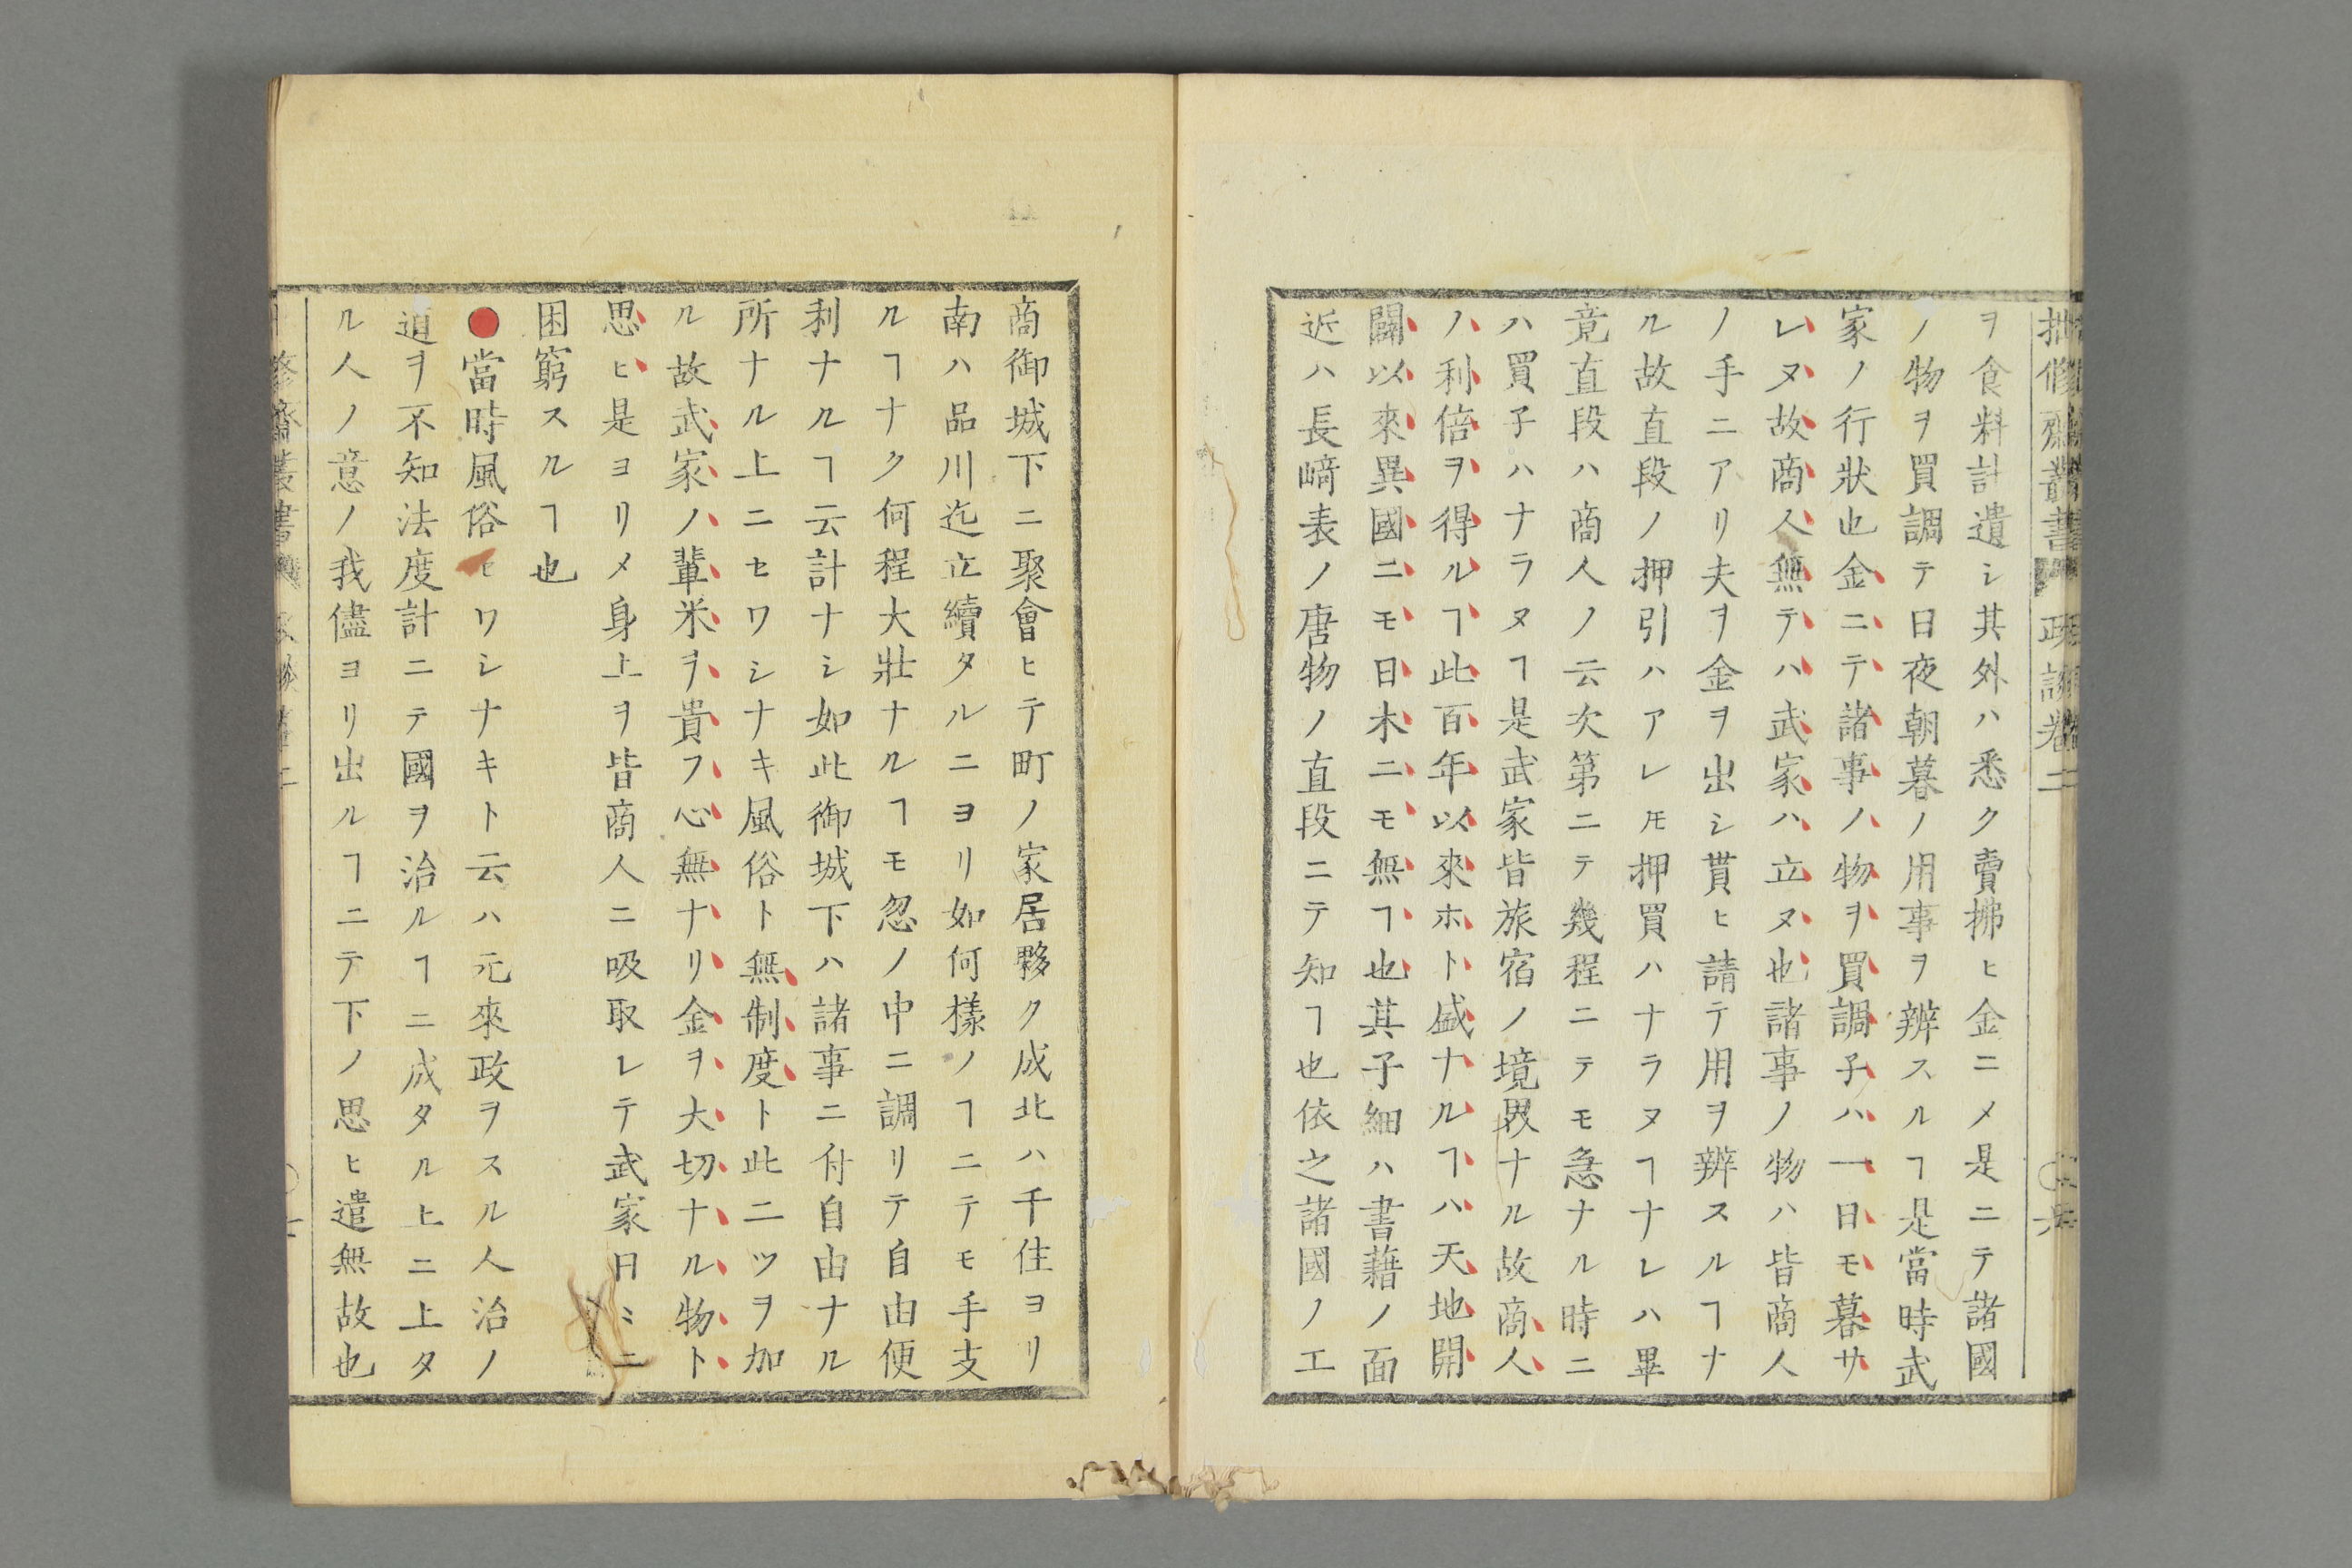 ヲ食料計遺シ其外ハ悉ク賣拂ヒ金ニメ是ニテ諸國
ノ物ヲ買調テ日夜朝暮ノ用事ヲ辨スルヿ是當時武
家ノ行狀也金ニテ諸事ノ物ヲ買調子ハ一日モ暮サ
レヌ故商人無テハ武家ハ立ヌ也諸事ノ物ハ皆商人
ノ手ニアリ夫ヲ金ヲ出シ貰ヒ請テ用ヲ辨スルヿナ
ル故直段ノ押引ハアレ𪜈押買ハナラヌヿナレハ畢
竟直段ハ商人ノ云次第ニテ幾程ニテモ急ナル時ニ
ハ買子ハナラヌヿ是武家皆旅宿ノ境界ナル故商人
ノ利倍ヲ得ルヿ此百年以來ホト盛ナルヿハ天地開
闢以來異國ニモ日木ニモ無ヿ也其子細ハ書藉ノ面
近ハ長崎表ノ唐物ノ直段ニテ知ヿ也依之諸國ノ工
商御城下ニ聚會ヒテ町ノ家居夥ク成北ハ千住ヨリ
南ハ品川迄立續タルニヨリ如何樣ノヿニテモ手支
ルヿナク何程大壯ナルヿモ忽ノ中ニ調リテ自由便
利ナルヿ云計ナシ如此御城下ハ諸事ニ付自由ナル
所ナル上ニセワシナキ風俗ト無制度ト此二ツヲ加
ル故武家ノ輩米ヲ貴フ心無ナリ金ヲ大切ナル物ト
思ヒ是ヨリメ身上ヲ皆商人ニ吸取レテ武家日ミニ
困窮スルヿ也
●當時風俗セワシナキト云ハ元來政ヲスル人治ノ
道ヲ不知法度計ニテ國ヲ治ルヿニ成タル上ニ上タ
ル人ノ意ノ我儘ヨリ出ルヿニテ下ノ思ヒ遣無故也